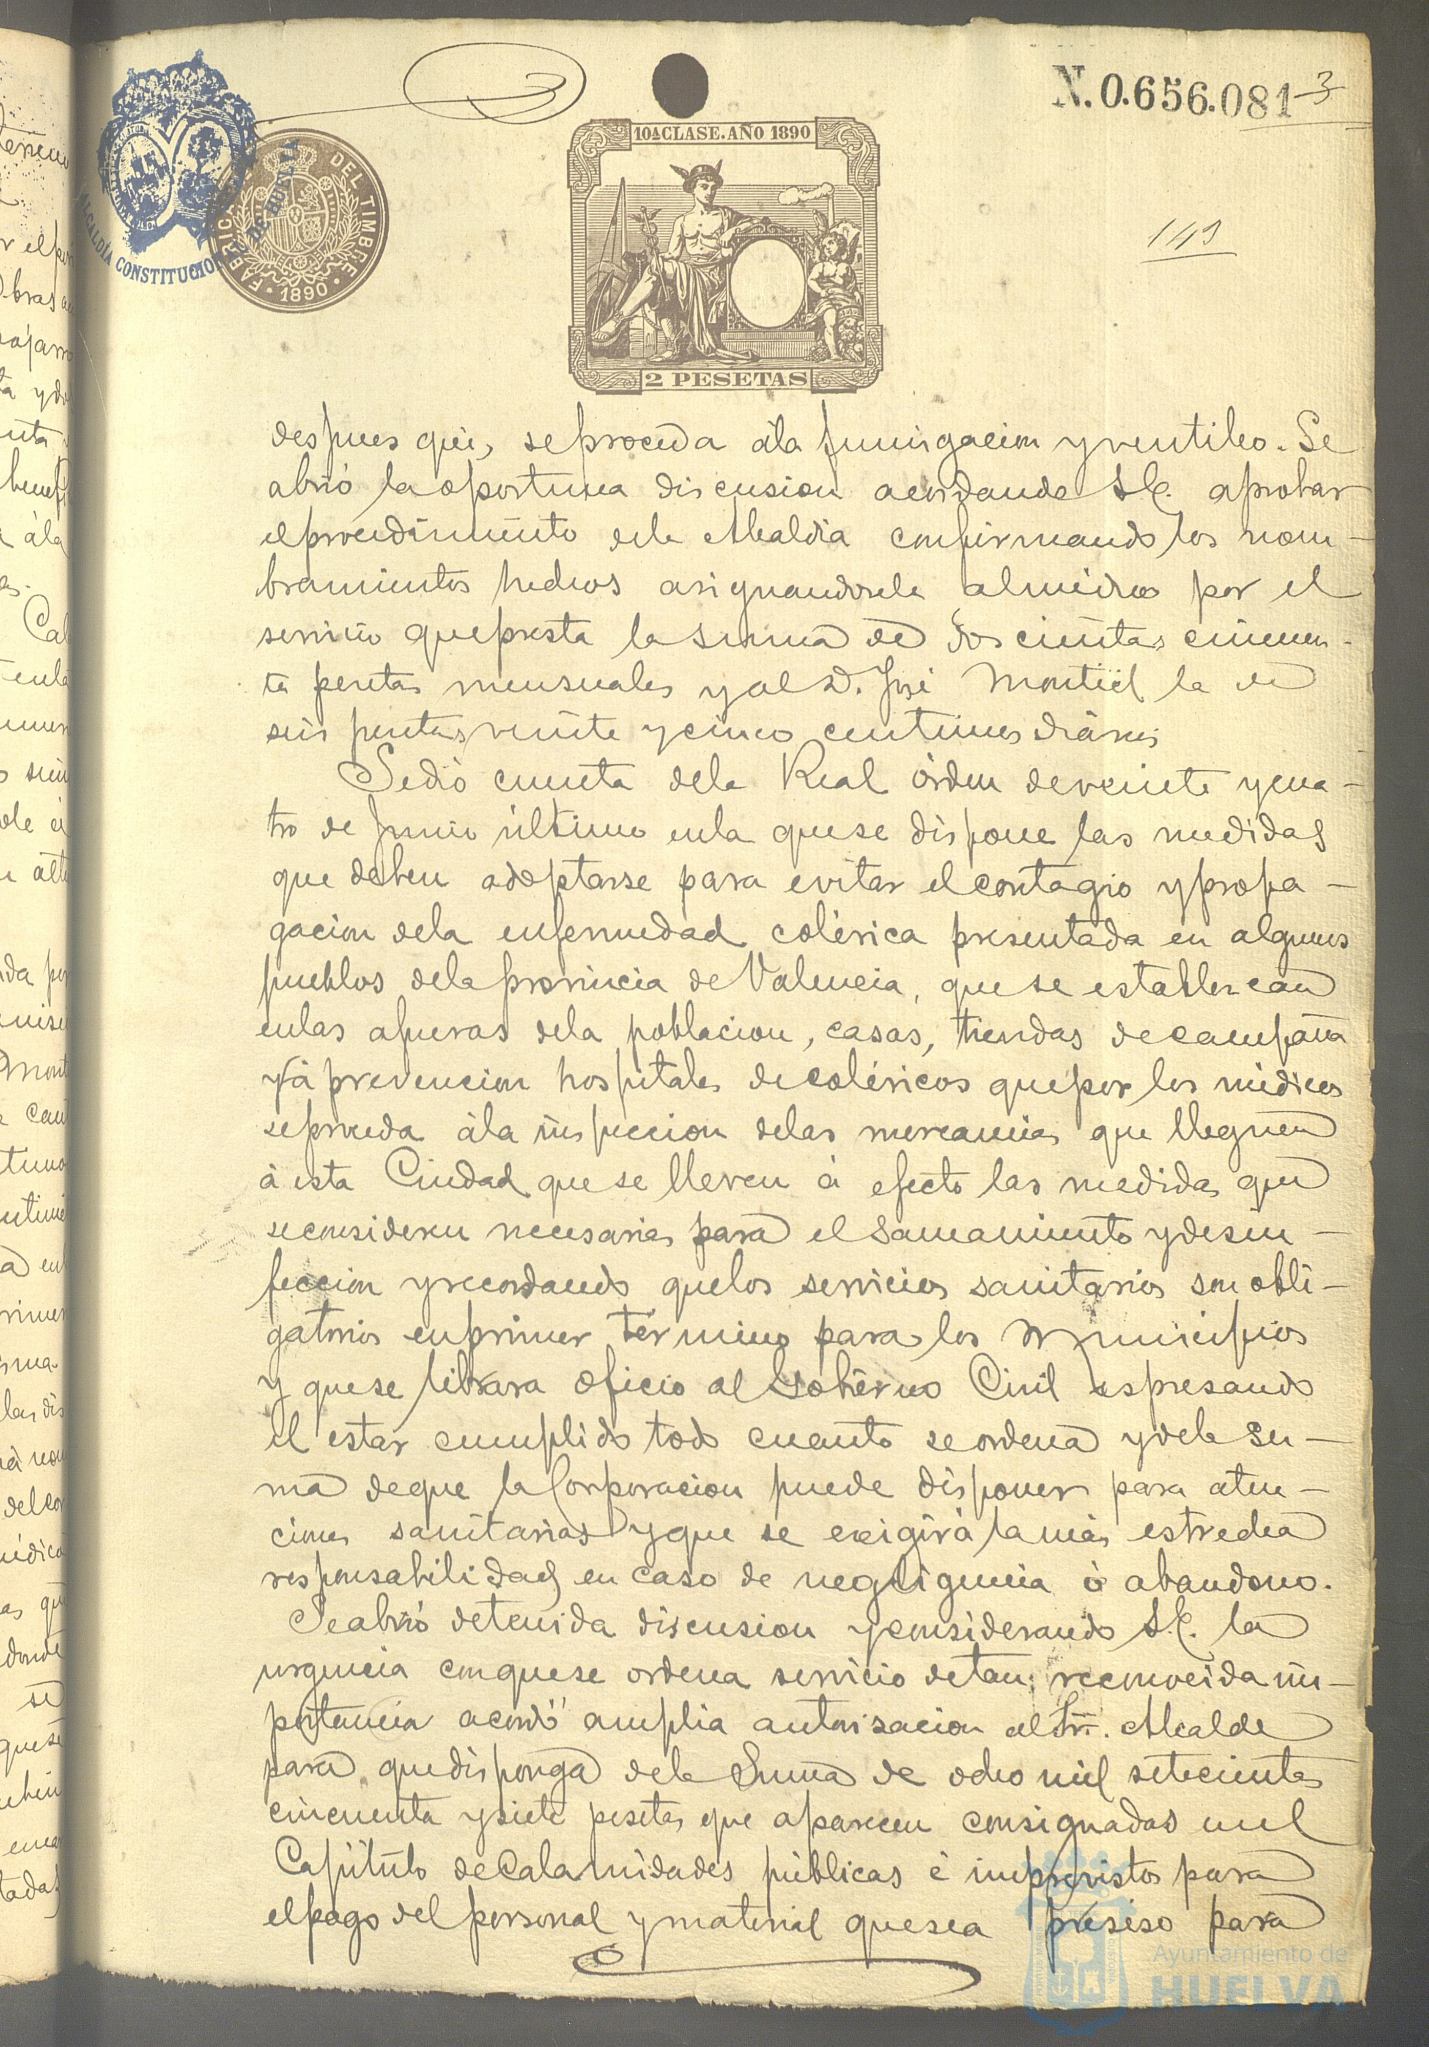 N.0.656.081
3
10ª CLASE. AÑO 1890
FABRICA DEL TIMBRE
1890
ALCALDÍA CONSTITUCIONAL DE HUELVA
149
2 PESETAS
despues qûe, seproceda ála fumigacion yventileo. Se
abrió la oportuna discusion acordando S.E. aprobar
elprocedimiento dela Alcaldia confirmando los nom-
bramientos hechos asignandosele almédico por el
servicio quepresta la suma de doscientas cincuen-
ta pesetas mensuales yal D. José Montiel la de
seis pesetas veinte ycinco centimos diários
Sedió cuenta dela Real órden deveinte ycua-
tro de Junio último enla quese dispone las medidas
que deben adoptarse para evitar elcontagio ypropa-
gacion dela enfermedad colérica presentada en algunos
pueblos dela provincia de Valencia, quese establezcan
enlas afueras dela poblacion, casas, tiendas decampaña
yá prevencion hospitales decoléricos quepor los médicos
seproceda ála inspeccion delas mercancias que lleguen
á esta Ciudad quese lleven á efecto las medidas que
seconsideren necesarias para elsaneamiento ydesin-
feccion yrecordando quelos servicios sanitarios son obli-
gatorios enprimer término para los Municipios
y quese librara oficio al Gobierno Civil espresando
el estar cumplido todo cuanto seordena ydela su-
ma deque la Corporacion puede disponer para aten-
ciones sanitarias yque se exigirá lamás estrecha
responsabilidad en caso de negligencia ó abandono.
Seabrió detenida discusion yconsiderando S.E. la
urgencia conquese ordena servicio detan reconocida im-
portancia acordó amplia autorisacion al Sr. Alcalde
para quedisponga dela Suma de ocho mil setecientas
cincuenta ysiete pesetas que aparecen consignadas enel
Capítulo decalamidades públicas é imprevistos para
elpago del personal ymaterial quesea presiso para
Ayuntamiento de
HUELVA